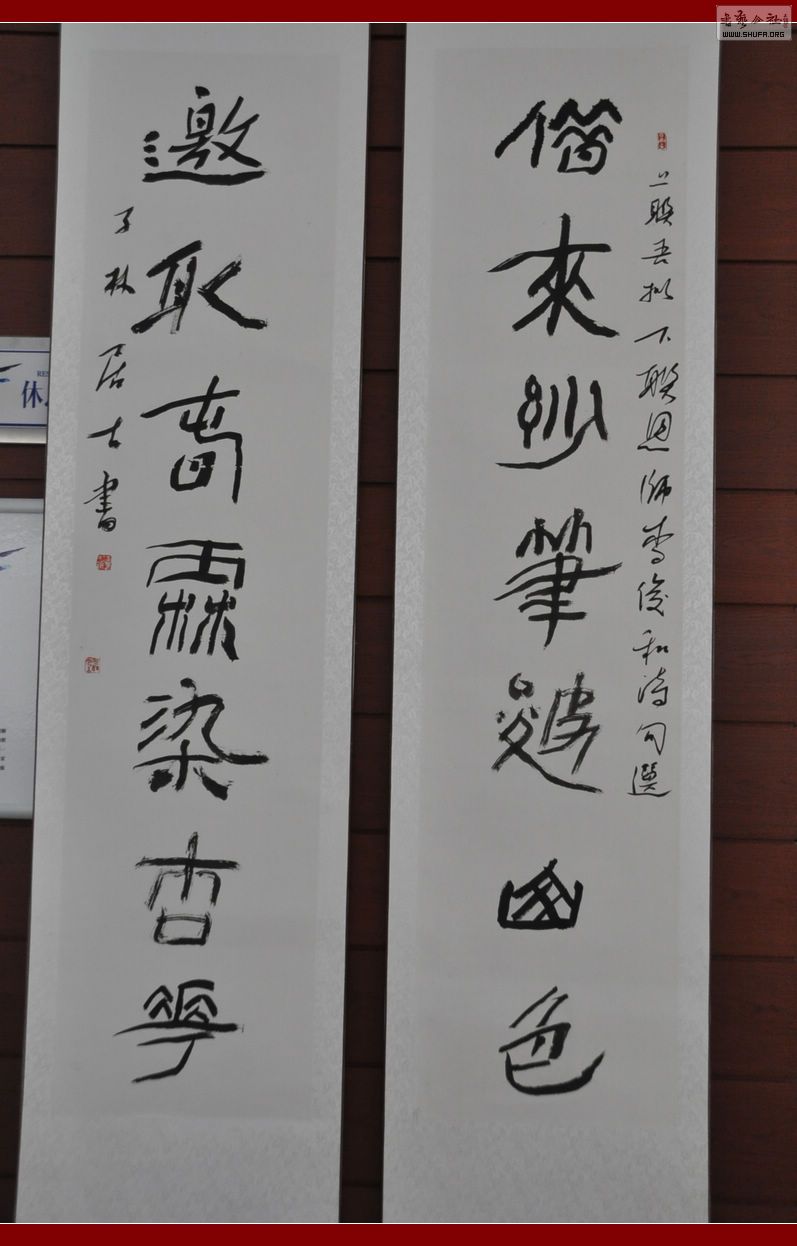 書藝公社
WWW.SHUFA.ORG
上聯吾拟下聯恩師李俊和詩句選
借來妙筆皴幽色
邀取春霖染杏花
子林居士書
休